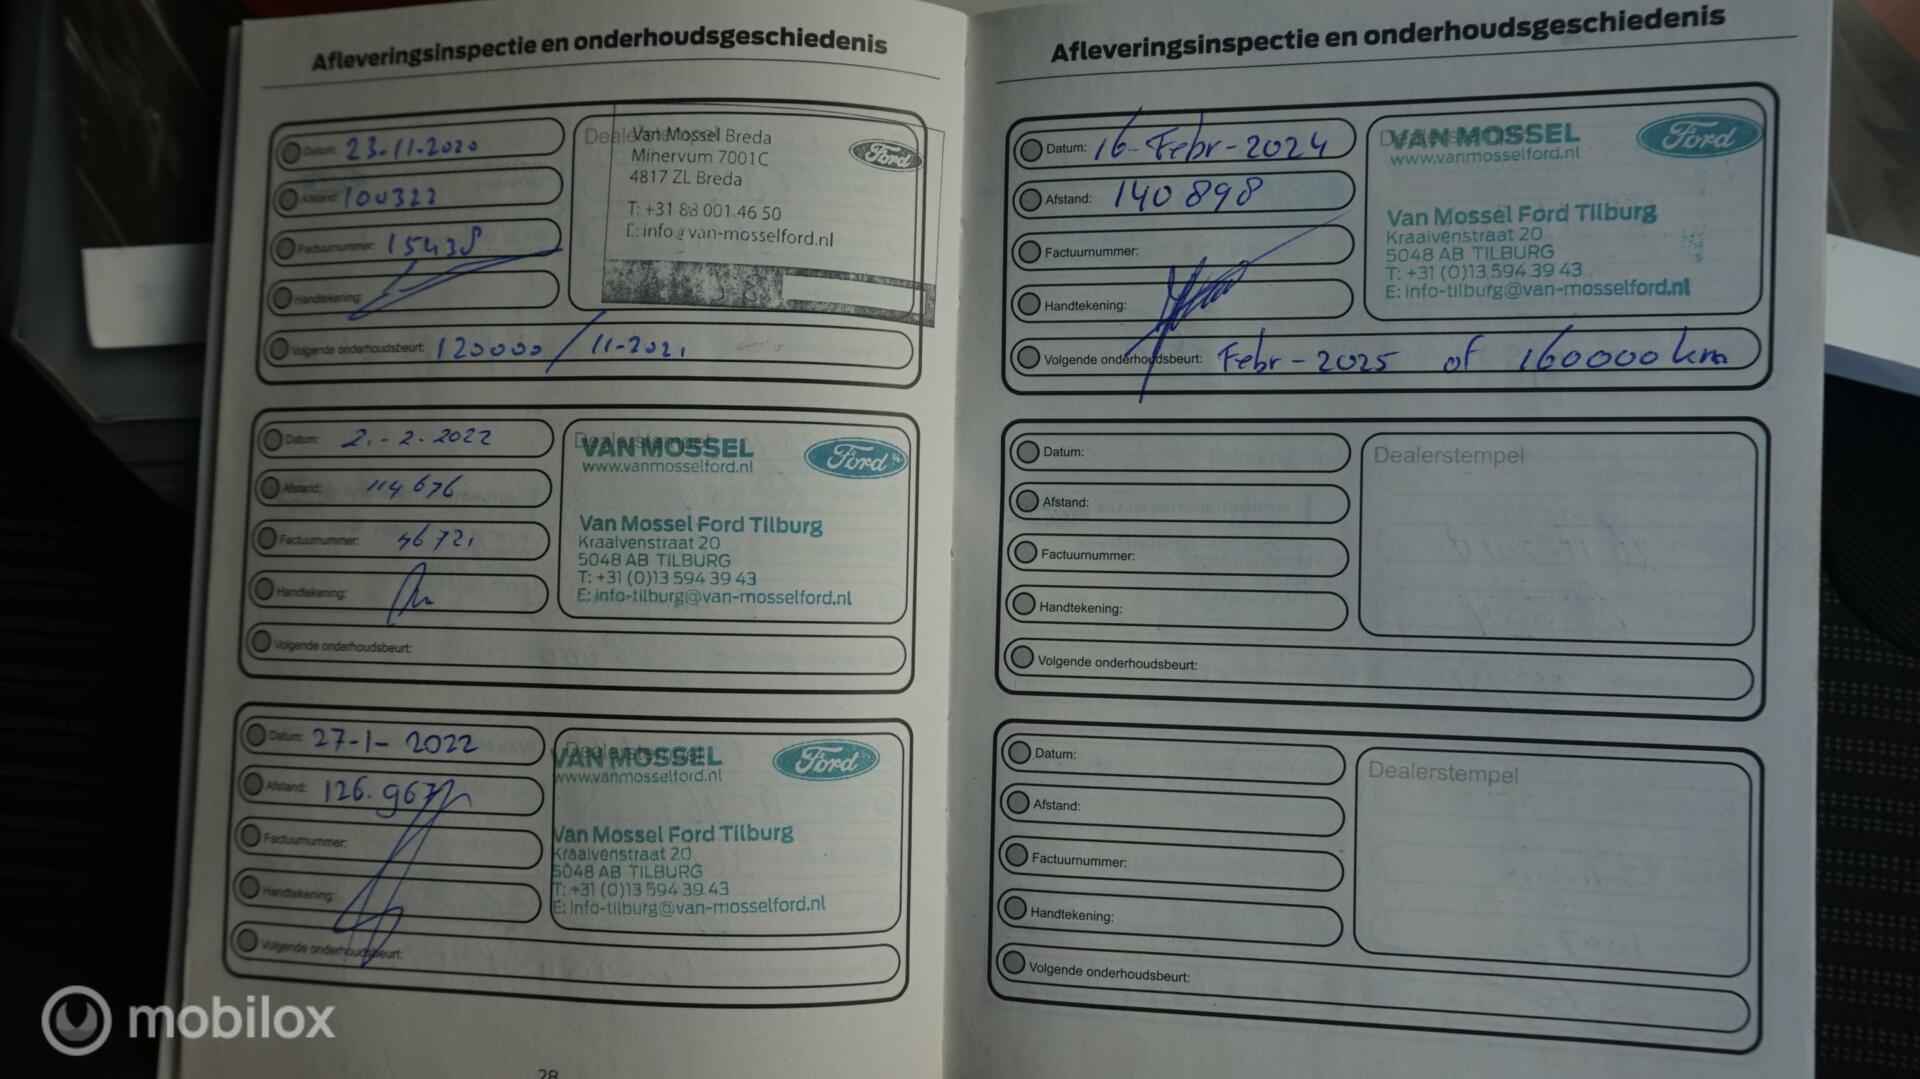 Afleveringsinspectie en onderhoudsgeschiedenis
Datum: 23-11-2020
Afstand: 100322
Factuurnummer: 15438
Handtekening:
Volgende onderhoudsbeurt: 120000 / 11-2021
Van Mossel Breda
Minervum 7001C
4817 ZL Breda
T: +31 88 001 46 50
E: info@van-mosselford.nl
Ford
Datum: 2-2-2022
Afstand: 114676
Factuurnummer: 46721
Handtekening:
Volgende onderhoudsbeurt:
VAN MOSSEL
www.vanmosselford.nl
Ford
Van Mossel Ford Tilburg
Kraaivenstraat 20
5048 AB TILBURG
T: +31 (0)13 594 39 43
E: info-tilburg@van-mosselford.nl
Datum: 27-1-2022
Afstand: 126.967
Factuurnummer:
Handtekening:
Volgende onderhoudsbeurt:
VAN MOSSEL
www.vanmosselford.nl
Ford
Van Mossel Ford Tilburg
Kraaivenstraat 20
5048 AB TILBURG
T: +31 (0)13 594 39 43
E: info-tilburg@van-mosselford.nl
28
Afleveringsinspectie en onderhoudsgeschiedenis
Datum: 16-Febr-2024
Afstand: 140 898
Factuurnummer:
Handtekening:
Volgende onderhoudsbeurt: Febr-2025 of 160000 km
VAN MOSSEL
www.vanmosselford.nl
Ford
Van Mossel Ford Tilburg
Kraaivenstraat 20
5048 AB TILBURG
T: +31 (0)13 594 39 43
E: info-tilburg@van-mosselford.nl
Datum:
Afstand:
Factuurnummer:
Handtekening:
Volgende onderhoudsbeurt:
Dealerstempel
Datum:
Afstand:
Factuurnummer:
Handtekening:
Volgende onderhoudsbeurt:
Dealerstempel
mobilox